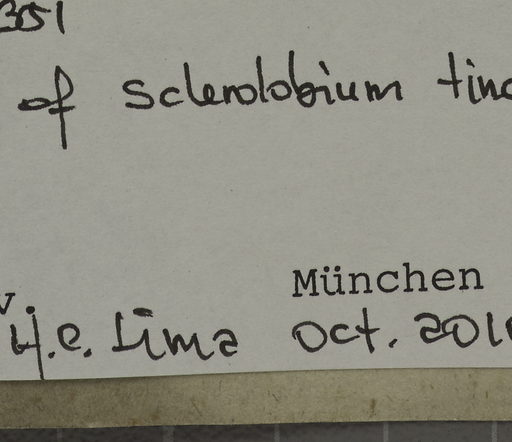 351
of Sclerolobium tinc
München
v. H.C. Lima Oct. 201